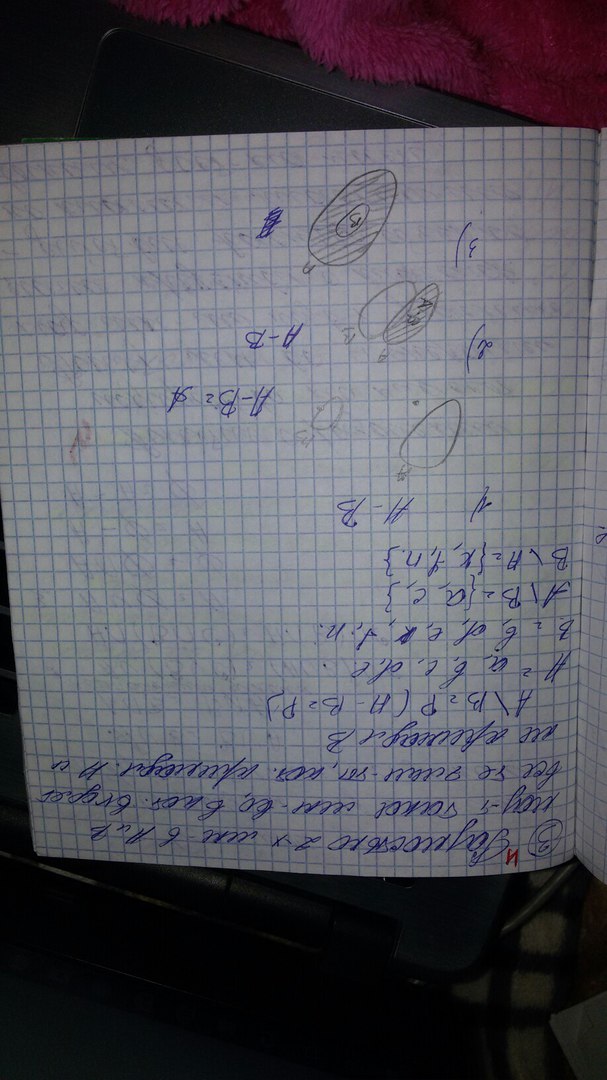 ③ Разностью 2-х мн-в А и В
наз-ся такое мн-во, в кот. входят
все те элем-ты, кот. принадл. А и
не принадл В
A \ B = P ( A - B = P )
A = a, b, c, d, e
B = b, d, e, k, f, n.
A \ B = { a, c, }
B \ A = { k, f, n. }
1) A - B
A
A - B = A
2)
A
B
A - B
3)
A
B